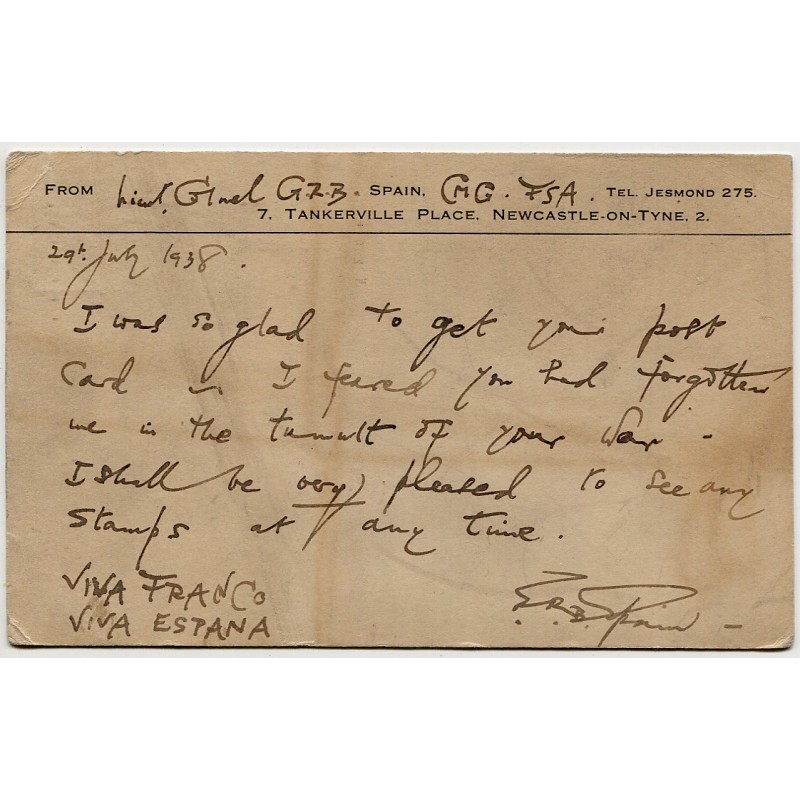 FROM Lieut. Colonel G.R.B. SPAIN, CMG. FSA. TEL. JESMOND 275.
7. TANKERVILLE PLACE, NEWCASTLE-ON-TYNE, 2.
29th July 1938.
I was so glad to get your post
card I feared you had forgotten
me in the tumult of your war -
I shall be very pleased to see any
stamps at any time.
VIVA FRANCO
VIVA ESPANA
G.R.B. Spain -